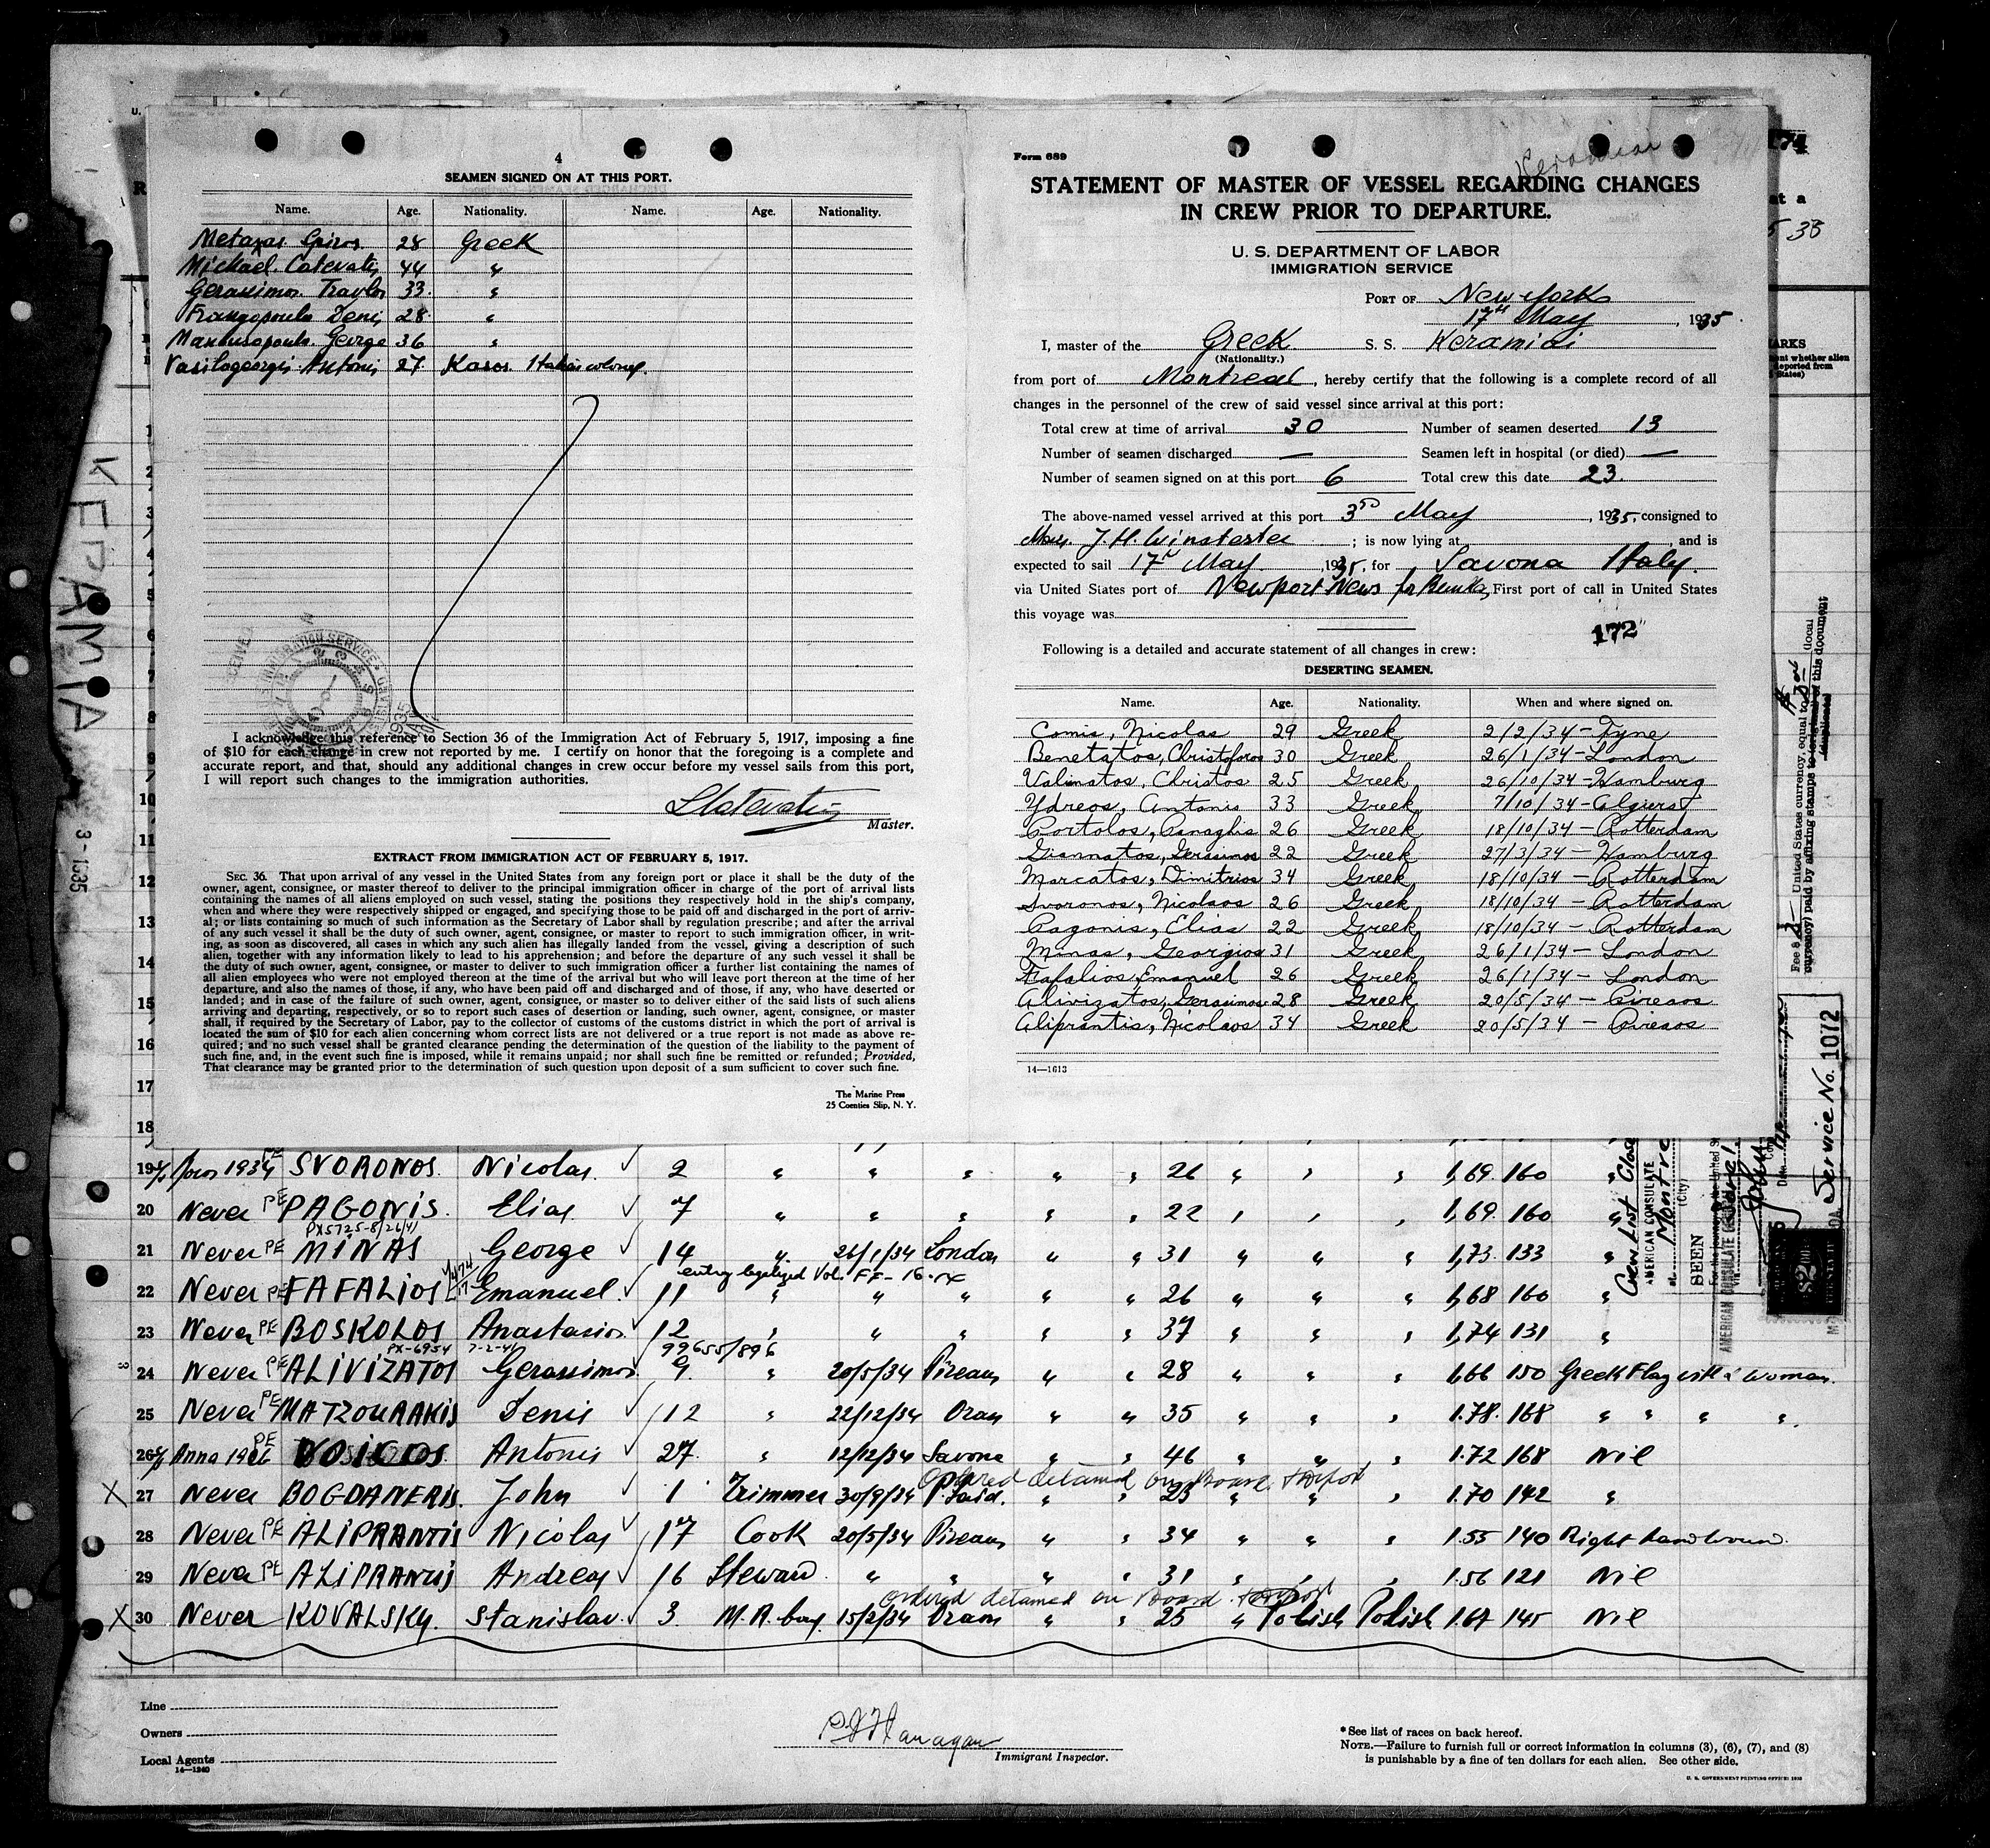 4
SEAMEN SIGNED ON AT THIS PORT.
Name. Age. Nationality. Name. Age. Nationality.
Metaxas Spiros. 28 Greek
Mickael. Catevatis 44 "
Gerassimos. Travlos 33. "
Frangopoulos Denis 28. "
George 36 "
Vasilogeorgis Antonis 27. Kasos. Italian colony.
I acknowledge this reference to Section 36 of the Immigration Act of February 5, 1917, imposing a fine
of $10 for each change in crew not reported by me. I certify on honor that the foregoing is a complete and
accurate report, and that, should any additional changes in crew occur before my vessel sails from this port,
I will report such changes to the immigration authorities.
Master.
EXTRACT FROM IMMIGRATION ACT OF FEBRUARY 5, 1917.
SEC. 36. That upon arrival of any vessel in the United States from any foreign port or place it shall be the duty of the
owner, agent, consignee, or master thereof to deliver to the principal immigration officer in charge of the port of arrival lists
containing the names of all aliens employed on such vessel, stating the positions they respectively hold in the ship's company,
when and where they were respectively shipped or engaged, and specifying those to be paid off and discharged in the port of arriv-
al; or lists containing so much of such information as the Secretary of Labor shall by regulation prescribe; and after the arrival
of any such vessel it shall be the duty of such owner, agent, consignee, or master to report to such immigration officer, in writ-
ing, as soon as discovered, all cases in which any such alien has illegally landed from the vessel, giving a description of such
alien, together with any information likely to lead to his apprehension; and before the departure of any such vessel it shall be
the duty of such owner, agent, consignee, or master to deliver to such immigration officer a further list containing the names of
all alien employees who were not employed thereon at the time of the arrival but who will leave port thereon at the time of her
departure, and also the names of those, if any, who have been paid off and discharged and of those, if any, who have deserted or
landed; and in case of the failure of such owner, agent, consignee, or master so to deliver either of the said lists of such aliens
arriving and departing, respectively, or so to report such cases of desertion or landing, such owner, agent, consignee, or master
shall, if required by the Secretary of Labor, pay to the collector of customs of the customs district in which the port of arrival is
located the sum of $10 for each alien concerning whom correct lists are not delivered or a true report is not made as above re-
quired; and no such vessel shall be granted clearance pending the determination of the question of the liability to the payment of
such fine, and, in the event such fine is imposed, while it remains unpaid; nor shall such fine be remitted or refunded; Provided,
That clearance may be granted prior to the determination of such question upon deposit of a sum sufficient to cover such fine.
The Marine Press
25 Coenties Slip, N. Y.
Form 689
STATEMENT OF MASTER OF VESSEL REGARDING CHANGES
IN CREW PRIOR TO DEPARTURE.
U. S. DEPARTMENT OF LABOR
IMMIGRATION SERVICE
PORT OF New York
17th May, 1935
I, master of the Greek S. S. Keramiai
(Nationality.)
from port of Montreal, hereby certify that the following is a complete record of all
changes in the personnel of the crew of said vessel since arrival at this port:
Total crew at time of arrival 30 Number of seamen deserted 13
Number of seamen discharged — Seamen left in hospital (or died) —
Number of seamen signed on at this port 6 Total crew this date 23.
The above-named vessel arrived at this port 3rd May, 1935, consigned to
Mess. J. H. Winchester; is now lying at , and is
expected to sail 17th May, 1935, for Savona Italy.
via United States port of Newport News for Bunkers, First port of call in United States
this voyage was
172
Following is a detailed and accurate statement of all changes in crew:
DESERTING SEAMEN.
Name. Age. Nationality. When and where signed on.
Comis, Nicolas 29 Greek 2/2/34 - Tyne
Benetatos, Christoforos 30 Greek 26/1/34 - London
Valinatos, Christos 25 Greek 26/10/34 - Hamburg
Ydreos, Antonis 33 Greek 7/10/34 - Algiers
Portolos, Panaghis 26 Greek 18/10/34 - Rotterdam
Giannatos, Gerasimos 22 Greek 27/3/34 - Hamburg
Marcatos, Dimitrios 34 Greek 18/10/34 - Rotterdam
Svoronos, Nicolaos 26 Greek 18/10/34 - Rotterdam
Pagonis, Elias 22 Greek 18/10/34 - Rotterdam
Minas, Georgios 31 Greek 26/1/34 - London
Fafalios, Emanuel 26 Greek 26/1/34 - London
Alivizatos, Gerasimos 28 Greek 20/5/34 - Pireaos
Aliprantis, Nicolaos 34 Greek 20/5/34 - Pireaos
14—1613
ΚΕΡΑΜΙΑ
3-1535
Service No. 1072
19 1934 SVORONOS. Nicolas. 2 " " " " " 26 " " " 1,69. 160 "
20 Never PE PAGONIS. Elias 7 " " " " " 22 " " " 1,69. 160 "
PX5725-8/26/41
21 Never PE MINAS George 14 " 26/1/34 London " " 31 " " " 1,73. 133 "
entry legalized Vol. FF-16.
22 Never PE FAFALIOS Emanuel. 11 " " " " " 26 " " " 1,68 160 "
23 Never PE BOSKOLOS Anastasios 12 " " " " " 37 " " " 1,74 131 "
PX-6954 7-2-41 99655/896
24 Never PE ALIVIZATOS Gerassimos 9. " 20/5/34 Pireaus " " 28 " " " 1,66 150 Greek Flag with a woman.
25 Never PE MATZOURAKIS Denis 12 " 22/12/34 Oran " " 35 " " " 1.78. 168 " " " "
26 Anna 1926 PE Antonis 27. " 12/12/34 Savona " " 46 " " " 1.72 168 Nil
ordered detained on Board
X 27 Never BOGDANERIS. John 1 Trimmer 30/9/34 P. Said. " " 23 " " " 1.70 142 "
28 Never PE ALIPRANTIS Nicolas 17 Cook 20/5/34 Pireaus " " 34 " " " 1.55 140 Right hand wound.
29 Never PE ALIPRANTIS Andreas 16 Steward. " " " " 31 " " " 1.56 121 Nil
ordered detained on Board
X 30 Never KOVALSKY. Stanislav. 3 M.R. boy 15/2/34 Oran " " 25 " Polish Polish 1.67 145 Nil
Line
Owners
Local Agents
14—1240
P J Flanagan
Immigrant Inspector.
* See list of races on back hereof.
NOTE.—Failure to furnish full or correct information in columns (3), (6), (7), and (8)
is punishable by a fine of ten dollars for each alien. See other side.
U. S. GOVERNMENT PRINTING OFFICE: